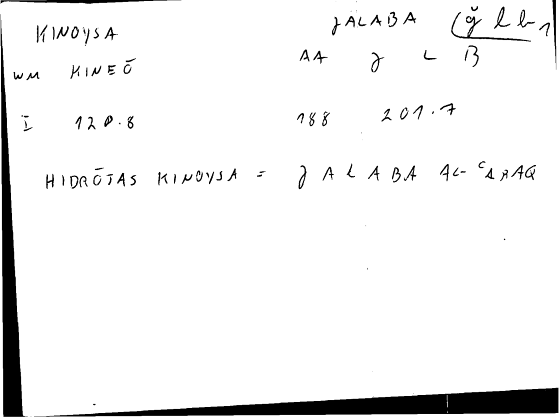 KINOYSA ǧALABA (ǧ l b 1
WM KINEŌ AA ǧ L B
I 120.8 188 201.7
HIDRŌTAS KINOYSA = ǧ ALABA AL-ʿARAQ